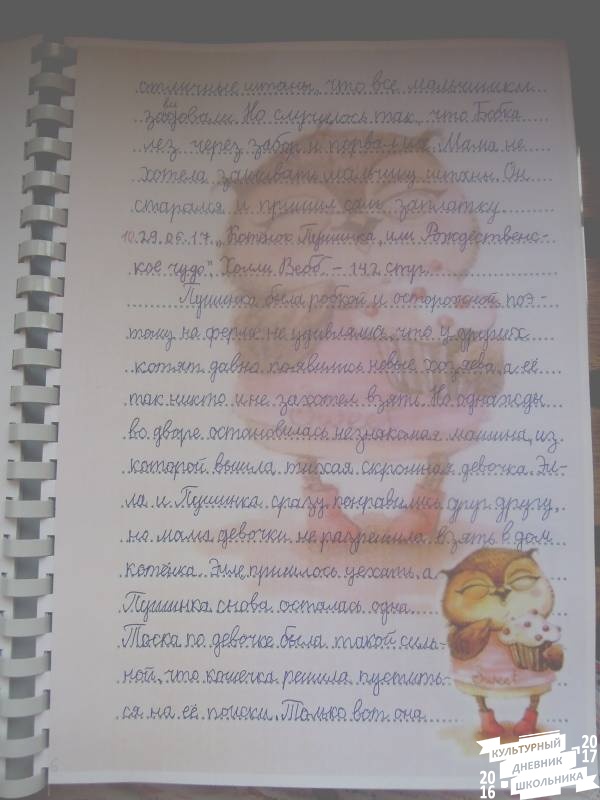 отличные штаны, что все мальчишки
завидовали. Но случилось так, что Бобка
лез через забор и порвал их. Мама не
хотела зашивать мальчику штаны. Он
старался и пришил сам заплатку.
10. 29.06.17. „Котёнок Пушинка, или Рождественс-
кое чудо" Холли Вебб – 142 стр.
Пушинка была робкой и осторожной, поэ-
тому на ферме не удивлялись, что у других
котят давно появились новые хозяева, а её
так никто и не захотел взять. Но однажды
во дворе остановилась незнакомая машина, из
которой вышла тихая скромная девочка. Эл-
ла и Пушинка сразу понравились друг другу,
но мама девочки не разрешила взять в дом
котёнка. Элле пришлось уехать, а
Пушинка снова осталась одна.
Тоска по девочке была такой силь-
ной, что кошечка решила пустить-
ся на её поиски. Только вот она
Sweet
6
КУЛЬТУРНЫЙ
ДНЕВНИК
ШКОЛЬНИКА
2016
2017